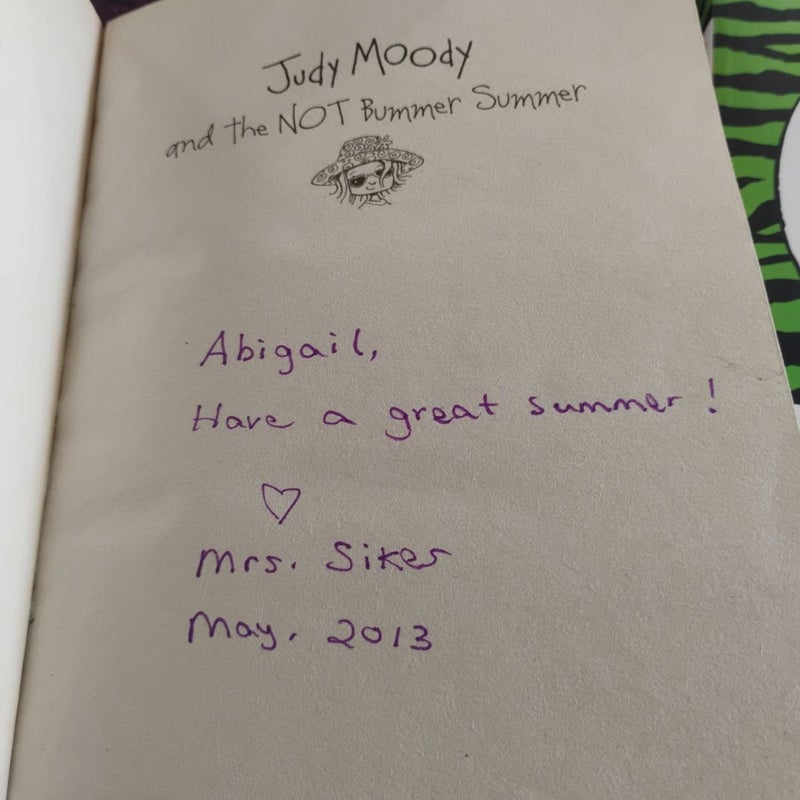 Judy Moody
and the NOT Bummer Summer
Abigail,
Have a great summer!
♡
Mrs. Sikes
May, 2013